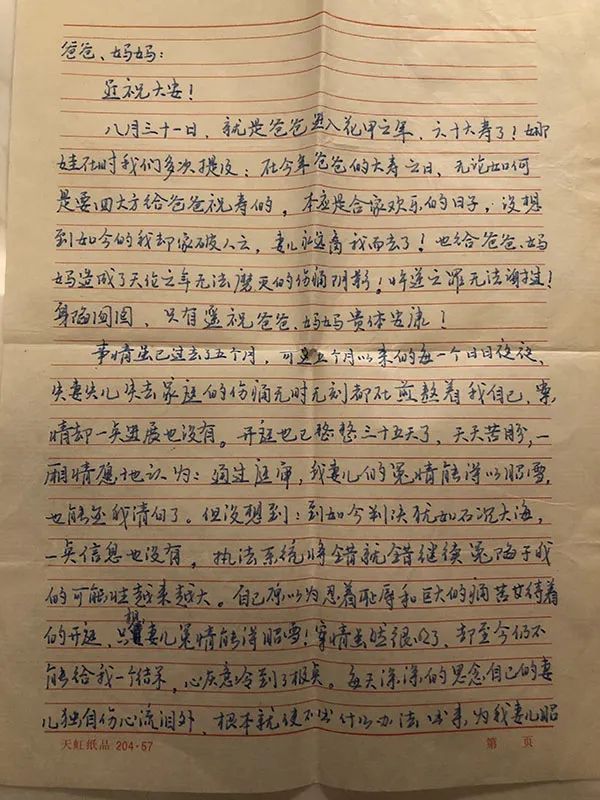 爸爸、妈妈:
近祝大安!
八月三十一日,就是爸爸进入花甲之年,六十大寿了!娜
娃在时我们多次提及:在今年爸爸的大寿之日,无论如何
是要回大方给爸爸祝寿的,本应是合家欢乐的日子,没想
到如今的我却家破人亡,妻儿永远离我而去了!也给爸爸、妈
妈造成了天伦之年无法磨灭的伤痛阴影!忤逆之罪无法谢挂!
身陷囹圄、只有遥祝爸爸、妈妈贵体安康!
事情虽已过去了五个月,可这五个月以来的每一个日日夜夜、
失妻失儿失去家庭的伤痛无时无刻都在煎熬着我自己,案
情却一点进展也没有。开庭也已整整三十五天了,天天苦盼,一
厢情愿地认为:通过庭审,我妻儿的冤情能得以昭雪,
也能还我清白了。但没想到:到如今判决犹如石沉大海,
一点信息也没有,执法系统将错就错继续冤陷于我
的可能性越来越大。自己原以为忍着耻辱和巨大的痛苦等待着
的开庭,只想妻儿冤情能得昭雪!案情虽然很明了,却至今仍不
能给我一个结果,心灰意冷到了极点。每天深深的思念自己的妻
儿独自伤心流泪外、根本就使不出什么办法出来,为我妻儿昭
天虹纸品 204-57 第 页